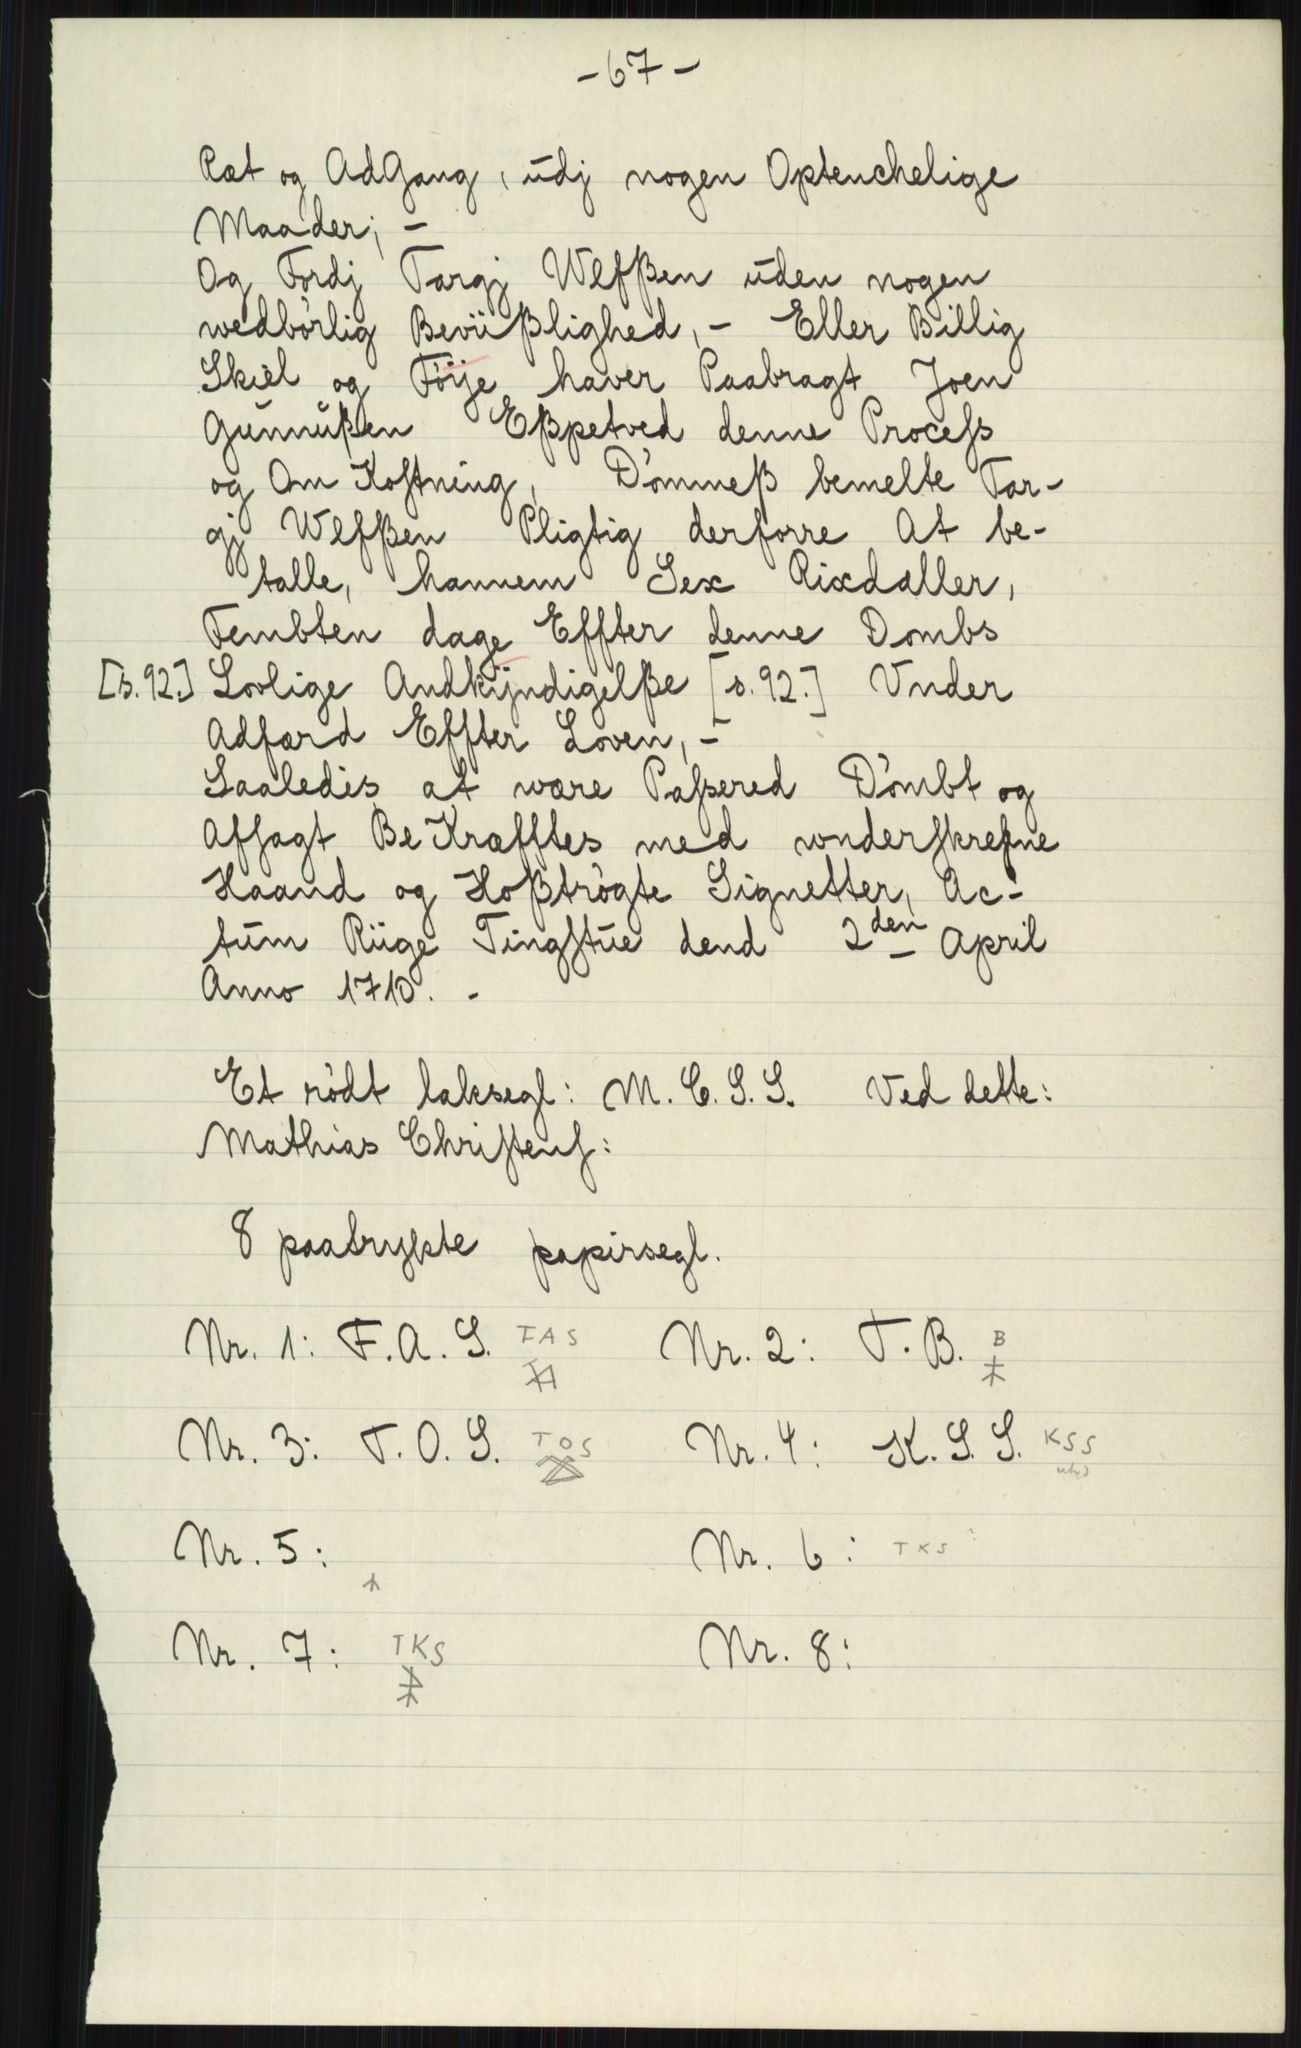 -67-
Ræt og AdGang, udj nogen Optenchelige
Maader; -
Og Fordj Targj Wlfßen uden nogen
wedbörlig Beviißlighed, - Eller Billig
Skiel og Föije haver Paabragt Joen
Gunnußen Eßpetved denne Process
og Om Kostning, Dömmeß bemelte Tar-
gj Wlfßen Pligtig derforre At be-
talle, hannem Sex Rixdaller,
Fembten dage Effter denne Dombs
[s. 92.] Lovlige Andkijndigelße [s. 92.] Vnder
Adfærd Effter Loven, -
Saaledis at wære Passered Dömbt og
Afsagt BeKræfftes med wnderskrefne
Haand og Hoßtrögte Signetter, Ac-
tum Riige Tingstue dend 2den April
Anno 1710. -
Et rödt laksegl: M. C. S. S. Ved dette:
Mathias Christens:
8 paatrykte papirsegl.
Nr. 1: F. A. S. TAS Nr. 2: T. B. B
Nr. 3: T. O. S. TOS Nr. 4: K. S. S. KSS
Nr. 5: Nr. 6: TKS
Nr. 7: TKS Nr. 8: